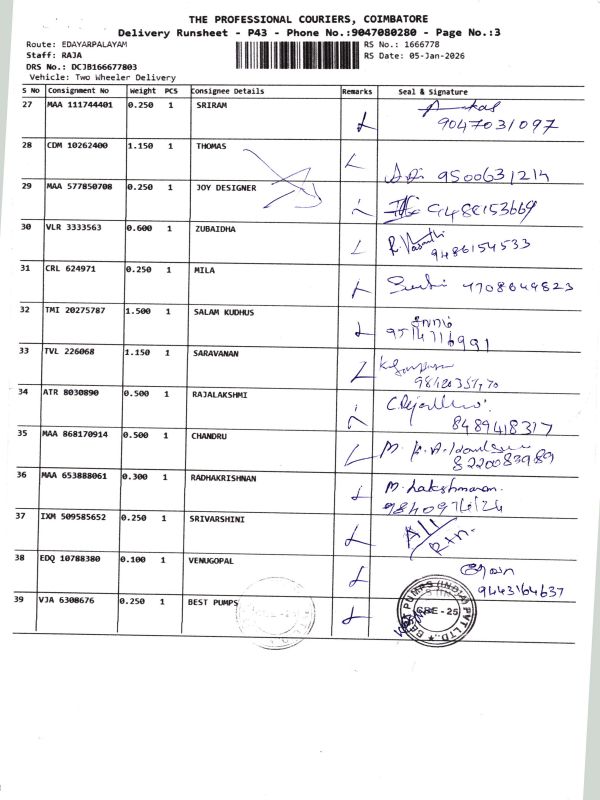 THE PROFESSIONAL COURIERS, COIMBATORE
Delivery Runsheet - P43 - Phone No.:9047080280 - Page No.:3
Route: EDAYARPALAYAM RS No.: 1666778
Staff: RAJA RS Date: 05-Jan-2026
DRS No.: DCJB166677803
Vehicle: Two Wheeler Delivery
S No Consignment No Weight PCS Consignee Details Remarks Seal & Signature
27 MAA 111744401 0.250 1 SRIRAM
9047031097
28 CDM 10262400 1.150 1 THOMAS
9500631214
29 MAA 577850708 0.250 1 JOY DESIGNER
30 VLR 3333563 0.600 1 ZUBAIDHA
R. Vasanthi
9486154533
31 CRL 624971 0.250 1 MILA
32 TMI 20275787 1.500 1 SALAM KUDHUS
9514716991
33 TVL 226068 1.150 1 SARAVANAN
34 ATR 8030890 0.500 1 RAJALAKSHMI
8489418317
35 MAA 868170914 0.500 1 CHANDRU
8220083989
36 MAA 653888061 0.300 1 RADHAKRISHNAN
M. Lakshmanan.
37 IXM 509585652 0.250 1 SRIVARSHINI
38 EDQ 10788380 0.100 1 VENUGOPAL
9443164637
39 VJA 6308676 0.250 1 BEST PUMPS
BEST PUMPS (INDIA) PVT LTD.,
CBE - 25